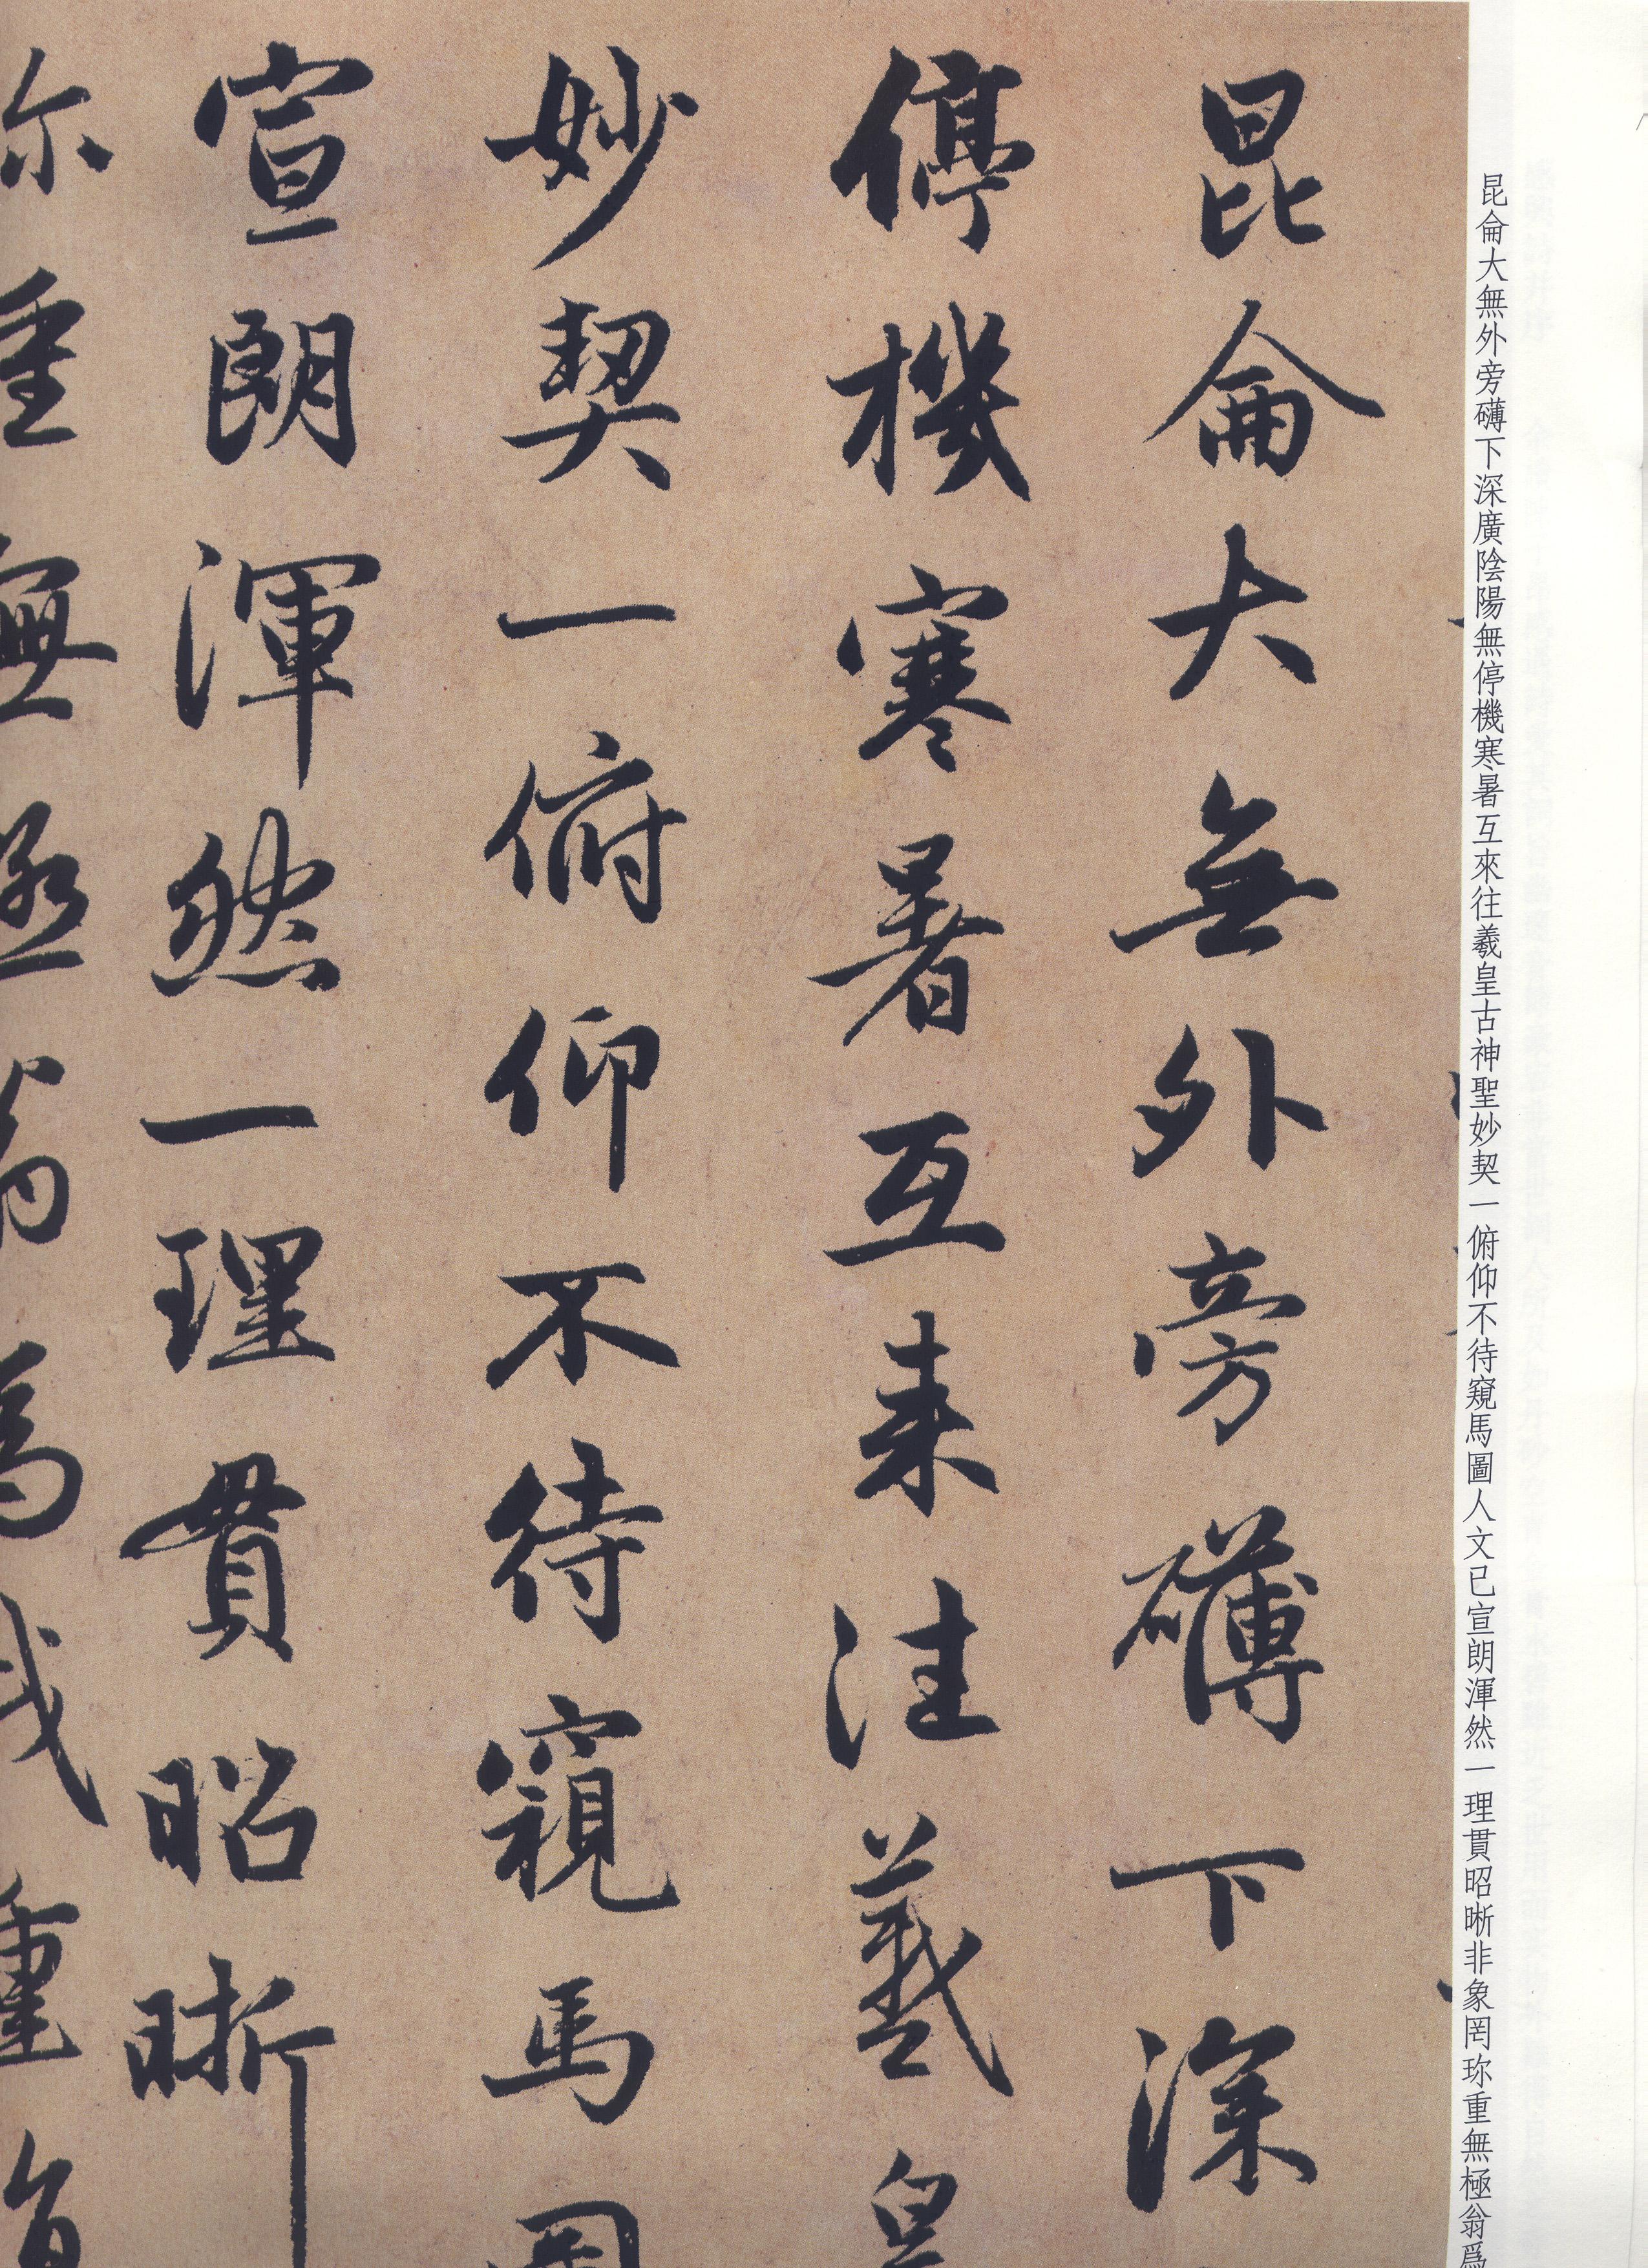 昆侖大無外旁礴下深廣陰陽無停機寒暑互來往羲皇古神聖妙契一俯仰不待窺馬圖人文已宣朗渾然一理貫昭晰非象罔珎重無極翁爲
昆侖大無外旁礴下深
停機寒暑互来往羲皇
妙契一俯仰不待窺馬圖
宣朗渾然一理貫昭晰
珎重無極翁爲我重